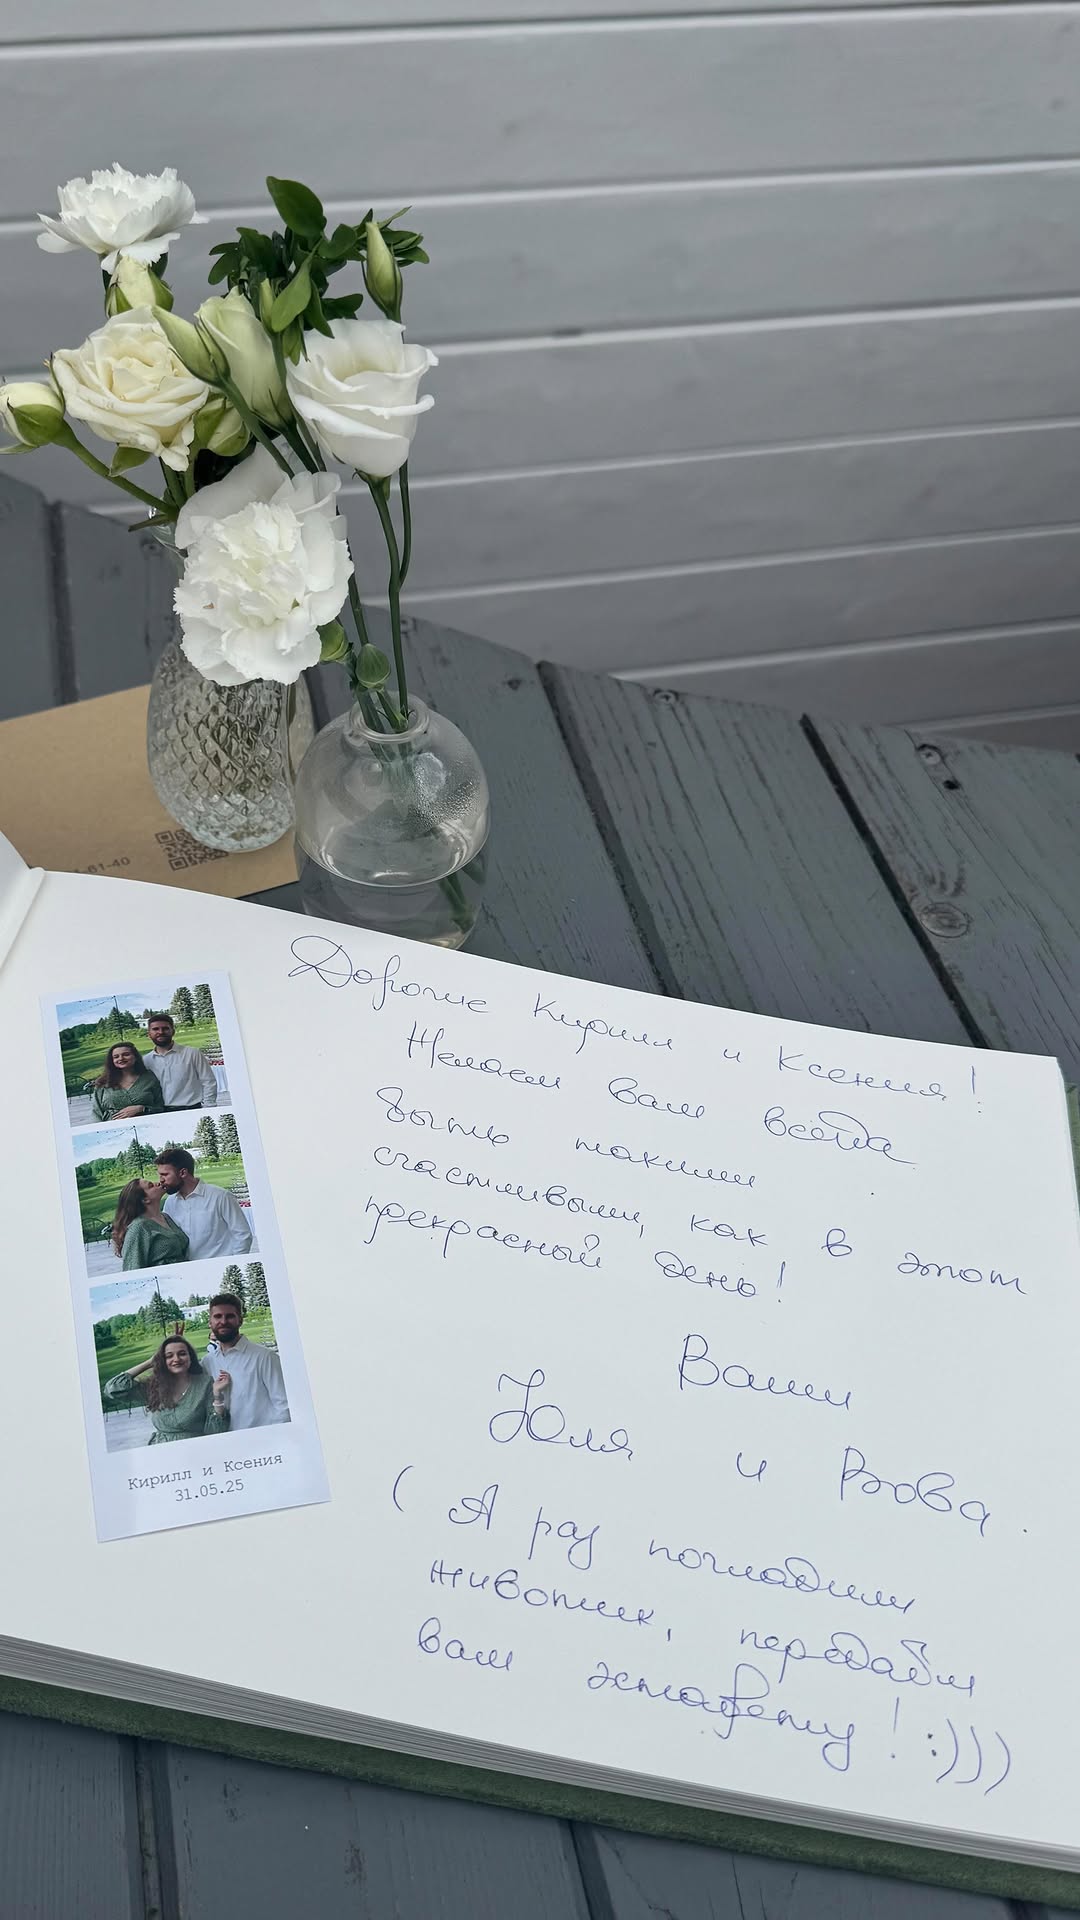 61-40
Дорогие Кирилл и Ксения!
Желаем вам всегда
быть такими
счастливыми, как в этот
прекрасный день!
Ваши
Юля и Вова.
(А раз погладили
животик, передаём
вам эстафету! :)))
Кирилл и Ксения
31.05.25